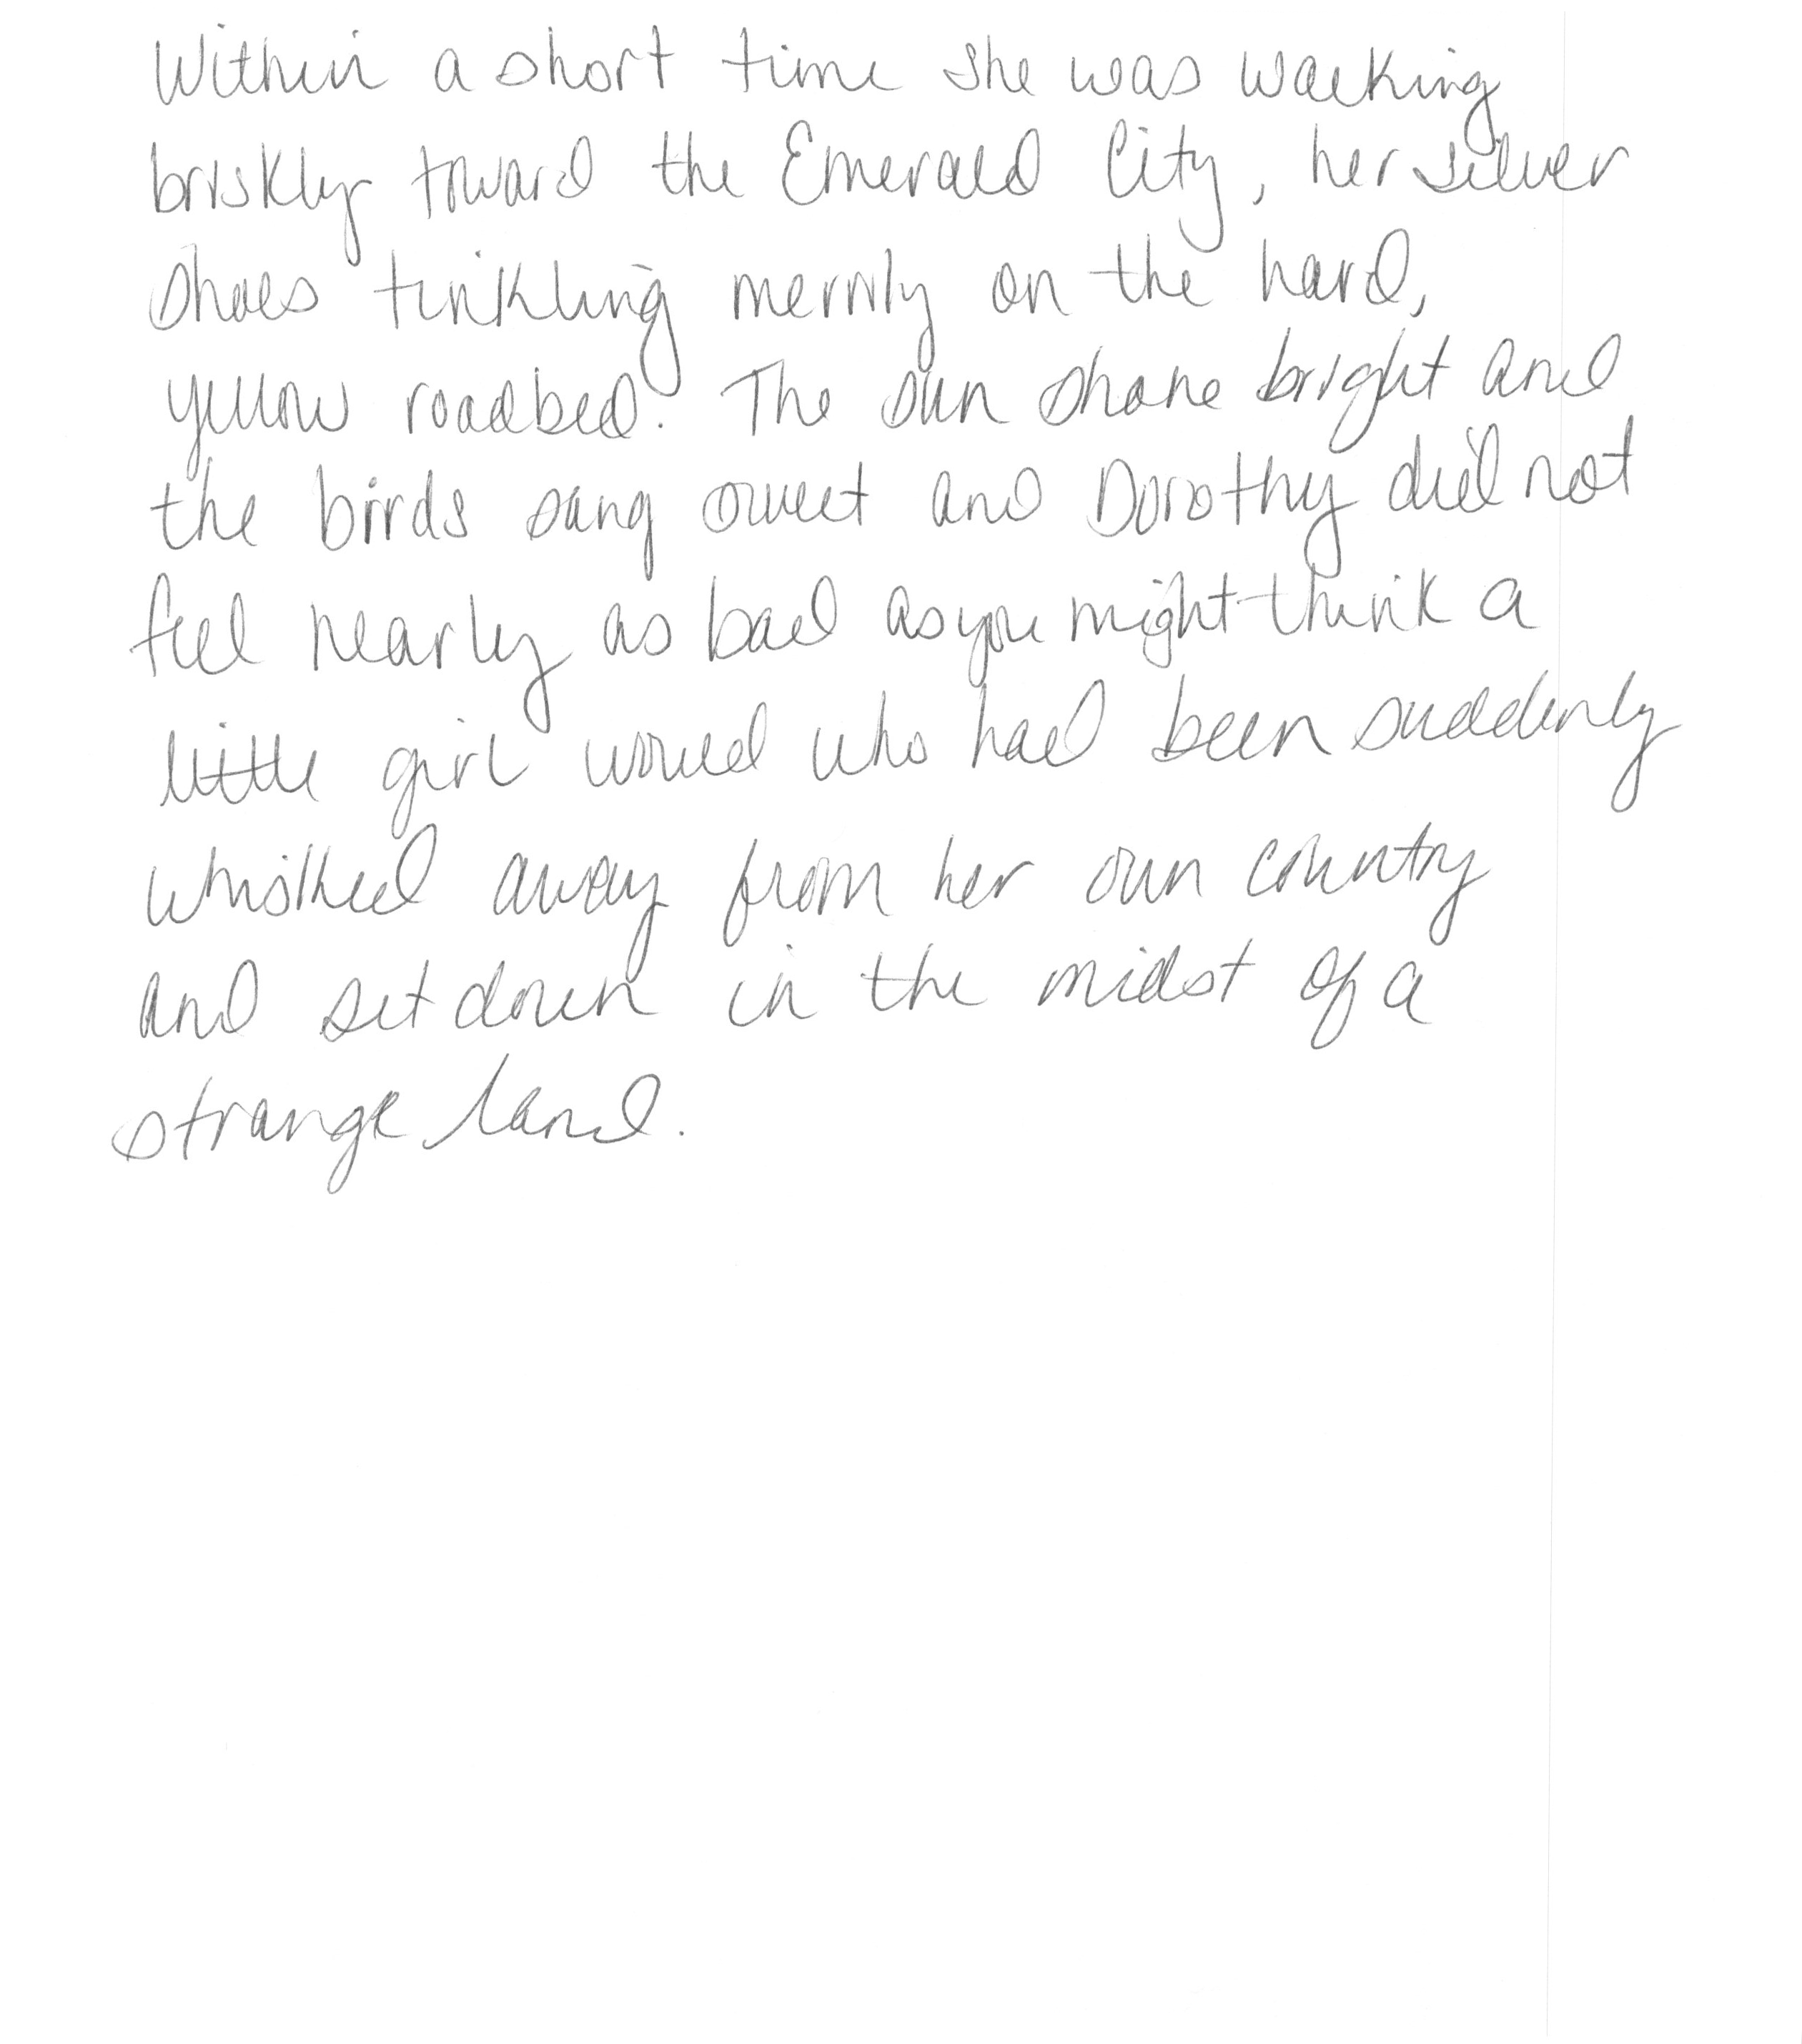 Within a short time she was walking
briskly toward the Emerald City, her silver
shoes tinkling merrily on the hard,
yellow roadbed. The sun shone bright and
the birds sang sweet and Dorothy did not
feel nearly as bad as you might think a
little girl would who had been suddenly
whisked away from her own country
and set down in the midst of a
strange land.